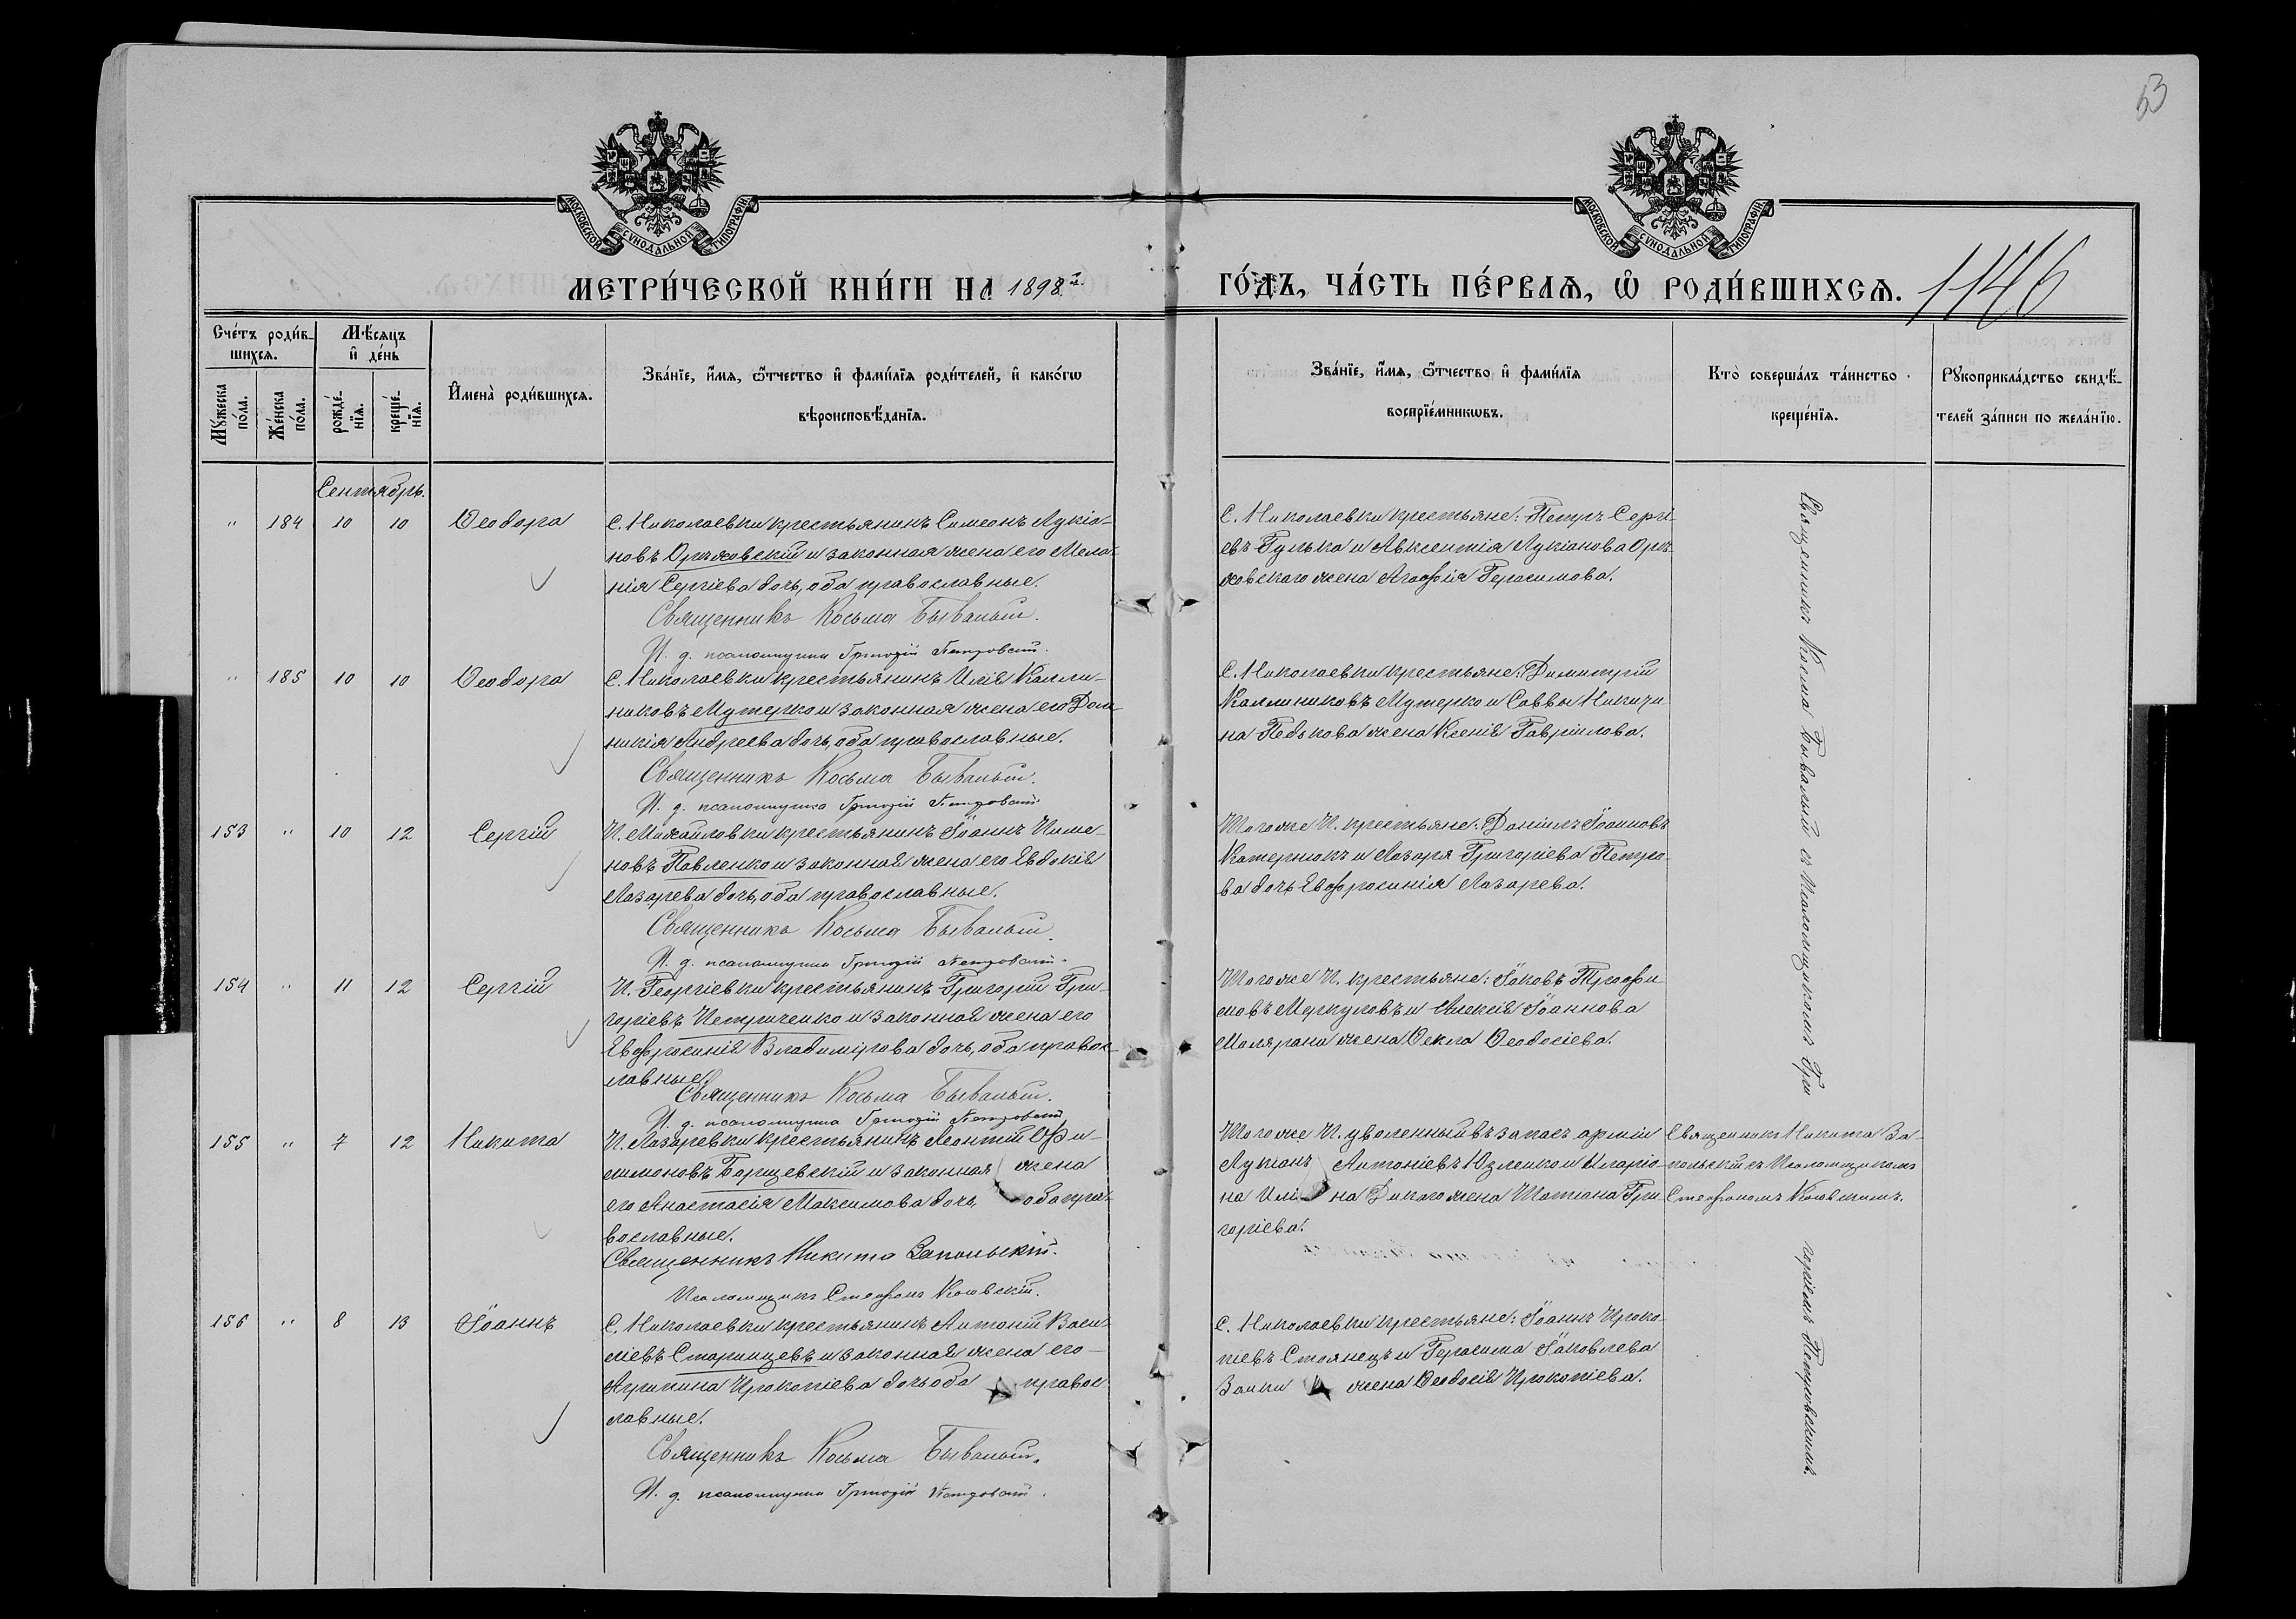 53
МОСКОВСКОЙ СѴНОДАЛЬНОЙ ТИПОГРАФІИ
МОСКОВСКОЙ СѴНОДАЛЬНОЙ ТИПОГРАФІИ
МЕТРИ́ЧЕСКОЙ КНИ́ГИ НА 1898й
ГО́ДЪ, ЧА́СТЬ ПЕ́РВАѦ, Ѽ РОДИ́ВШИХСѦ. 1146
Сче́тъ роди́в-
шихсѧ.
Мꙋ́жеска по́ла.
Же́нска по́ла.
Мѣ́сѧцъ и҆ де́нь
рожде́-нїѧ.
креще́-нїѧ.
И҆мена̀ роди́вшихсѧ.
Зва́нїе, и҆́мѧ, ѻ҆́тчество и҆ фами́лїѧ роди́телей, и҆ како́гѡ
вѣроисповѣ́данїѧ.
Зва́нїе, и҆́мѧ, ѻ҆́тчество и҆ фами́лїѧ
воспрїе́мникѡвъ.
Кто̀ соверша́лъ та́инство
креще́нїѧ.
Рꙋкоприкла́дство свидѣ́-
телей за́писи по жела́нїю.
Сентябрь.
" 184 10 10 Ѳеодора
С. Николаевки крестьянинъ Симеонъ Лукіа-
новъ Оржховскій и законная жена его Мела-
нія Сергіева дочь, оба православные.
Священникъ Косьма Бывалый.
И. д. псаломщика Григорій Петровскій.
С. Николаевки крестьяне: Петръ Сергі-
евъ Гулька и Авксентія Лукіанова
жена Агафія Герасимова.
" 185 10 10 Ѳеодора
С. Николаевки крестьянинъ Илія Калли-
никовъ Мутерко и законная жена его Дом-
никія Андреева дочь, оба православные.
Священникъ Косьма Бывалый.
И. д. псаломщика Григорій Петровскій
С. Николаевки крестьяне: Димитрій
Каллиниковъ Мутерко и Саввы Никити-
на Педькова жена Ксенія Гавріилова.
153 " 10 12 Сергій
П. Михайловки крестьянинъ Іоаннъ Пиме-
новъ Павленко и законная жена его Евдокія
Лазарева дочь, оба православные.
Священникъ Косьма Бывалый.
И. д. псаломщика Григорій Петровскій.
Того же П. крестьяне: Даніилъ Іоанновъ
Катернюкъ и Лазаря Григоріева Петро-
ва дочь Евфросинія Лазарева.
154 " 11 12 Сергій
П. Георгіевки крестьянинъ Григорій Гри-
горіевъ Петриченко и законная жена его
Евфросинія Владимірова дочь, оба правос-
лавные.
Священникъ Косьма Бывалый.
И. д. псаломщика Григорій Петровскій
Того же П. крестьяне: Іаковъ Трофи-
мовъ Меркуловъ и Алексія Іоаннова
Молярана жена Ѳекла Ѳеодосіева.
155 " 7 12 Никита
П. Лазаревки крестьянинъ Леонтій Фи-
лимоновъ Борщевскій и законная жена
его Анастасія Максимова дочь, оба пра-
вославные.
Священникъ Никита Запольскій.
Псаломщикъ Стефанъ Коивскій.
Того же П. уволенный въ запасъ арміи
Лукіанъ Антоніевъ Юзленко и Иларіо-
на Илі на Дикаго жена Татіана Гри-
горіева.
Священникъ Никита За-
польскій съ Псаломщикомъ
Стефаномъ
156 " 8 13 Іоаннъ
С. Николаевки крестьянинъ Антоній Васи-
ліевъ Старинцевъ и законная жена его
Агрипина Прокопіева дочь оба правос-
лавные.
Священникъ Косьма Бывалый.
И. д. псаломщика Григорій Петровскій.
С. Николаевки крестьяне: Іоаннъ Проко-
піевъ Стоянецъ и Герасима Іаковлева
Заики жена Ѳеодосія Прокопіева.
Священникъ Косьма Бывалый съ Псаломщикомъ Гри
горіемъ Петровскимъ.